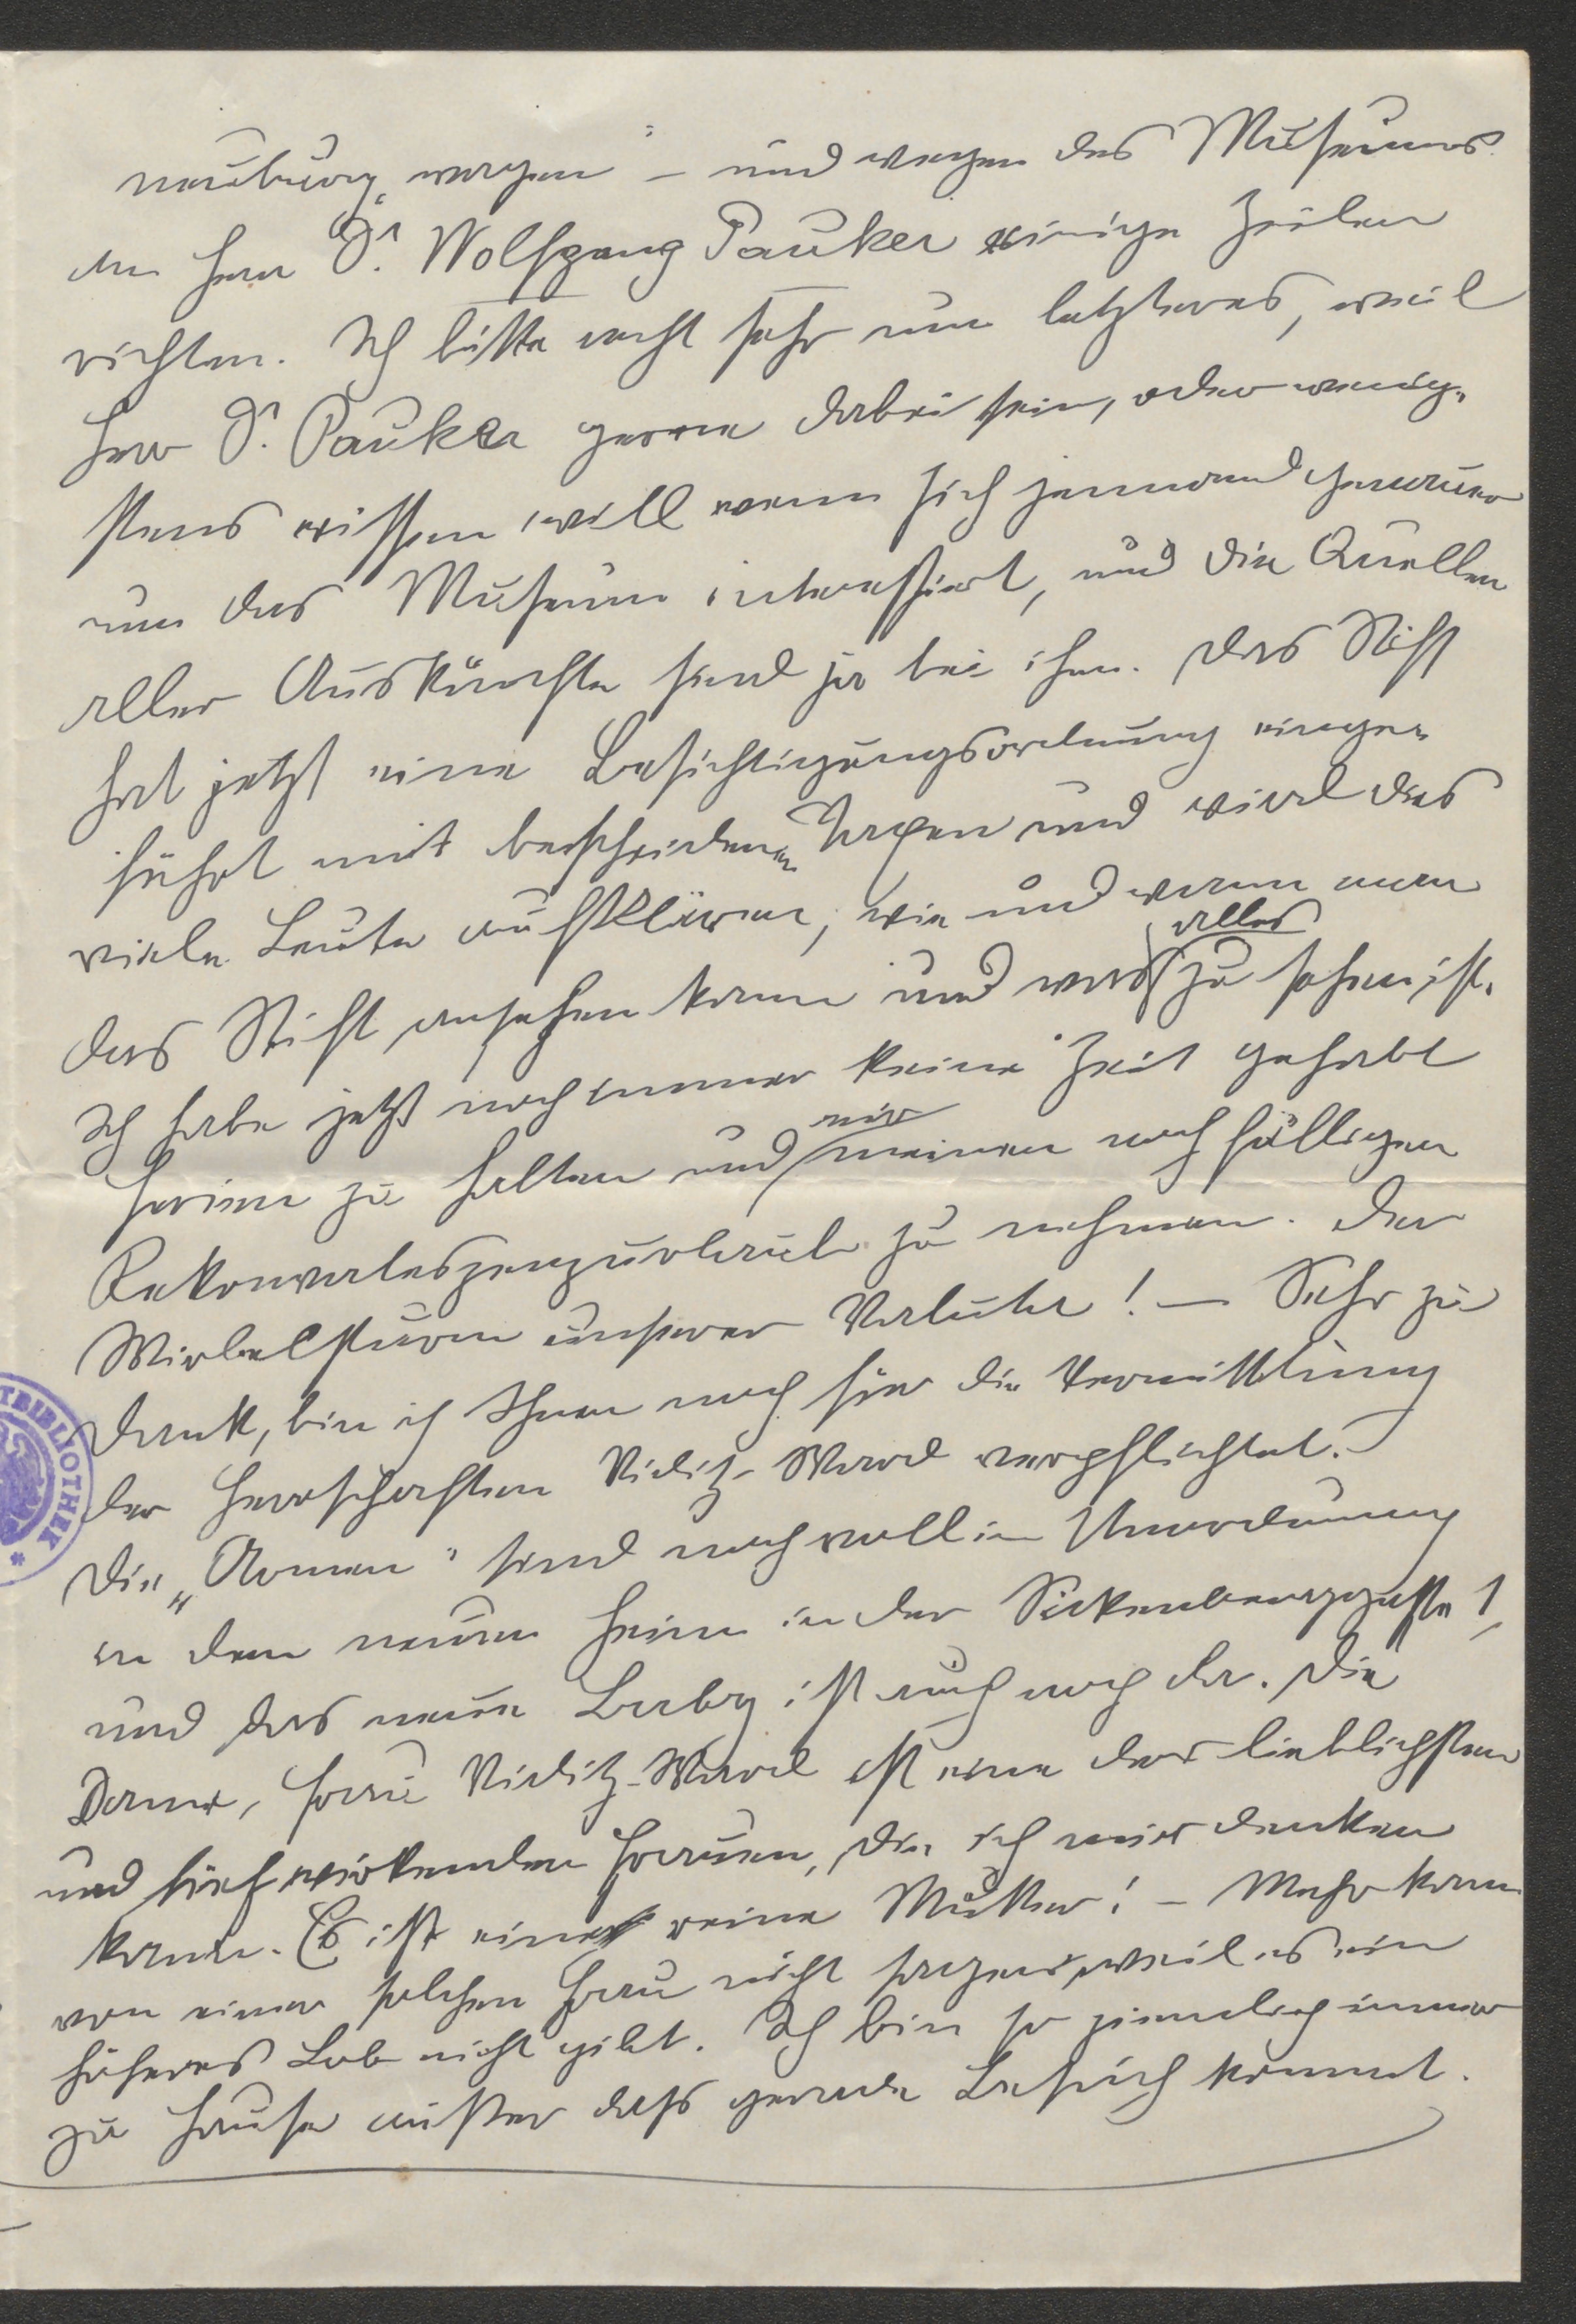 neuburg wegen – und wegen des Museums
an Herrn Dr. Wolfgang Pauker einige Zeilen
richten. Ich bitte recht sehr um letzteres, weil
Herr Dr. Pauker gerne dabei sein, oder wenig-
stens wissen will wenn sich jemand genauer
um das Museum interessiert, und die Quellen
aller Auskünfte sind ja bei ihm. Das Stift
hat jetzt eine Besichtigungsordnung einge-
führt mit bescheidenen Taxen und wird das
viele Leute aufklären, wie und wann man
das Stift ansehen kann und was alles zu sehen ist.
Ich habe jetzt noch immer keine Zeit gehabt
Ferien zu halten und mir meinen noch fälligen
Rekonvaleszenzurlaub zu nehmen. Der
Wirbelsturm unserer Valuta! – Sehr zu
Dank, bin ich Ihnen noch für die Vermittlung
der Herrschaften Viditz-Ward verpflichtet.
Die „Armen" sind noch voll in Unordnung
in dem neuen Heim in der Sickenberggasse 1,
und das neue Baby ist auch noch da. Die
Dame, Frau Viditz-Ward ist eine der lieblichsten
und tiefwirkenden Frauen, die ich mir denken
kann. Es ist eine reine Mutter! – Mehr kann
von einer solchen Frau nicht sagen, weil es ein
höheres Lob nicht gibt. Ich bin so ziemlich immer
zu Hause außer dass gerade Besuch kommt.
TEIBLIOTHEK